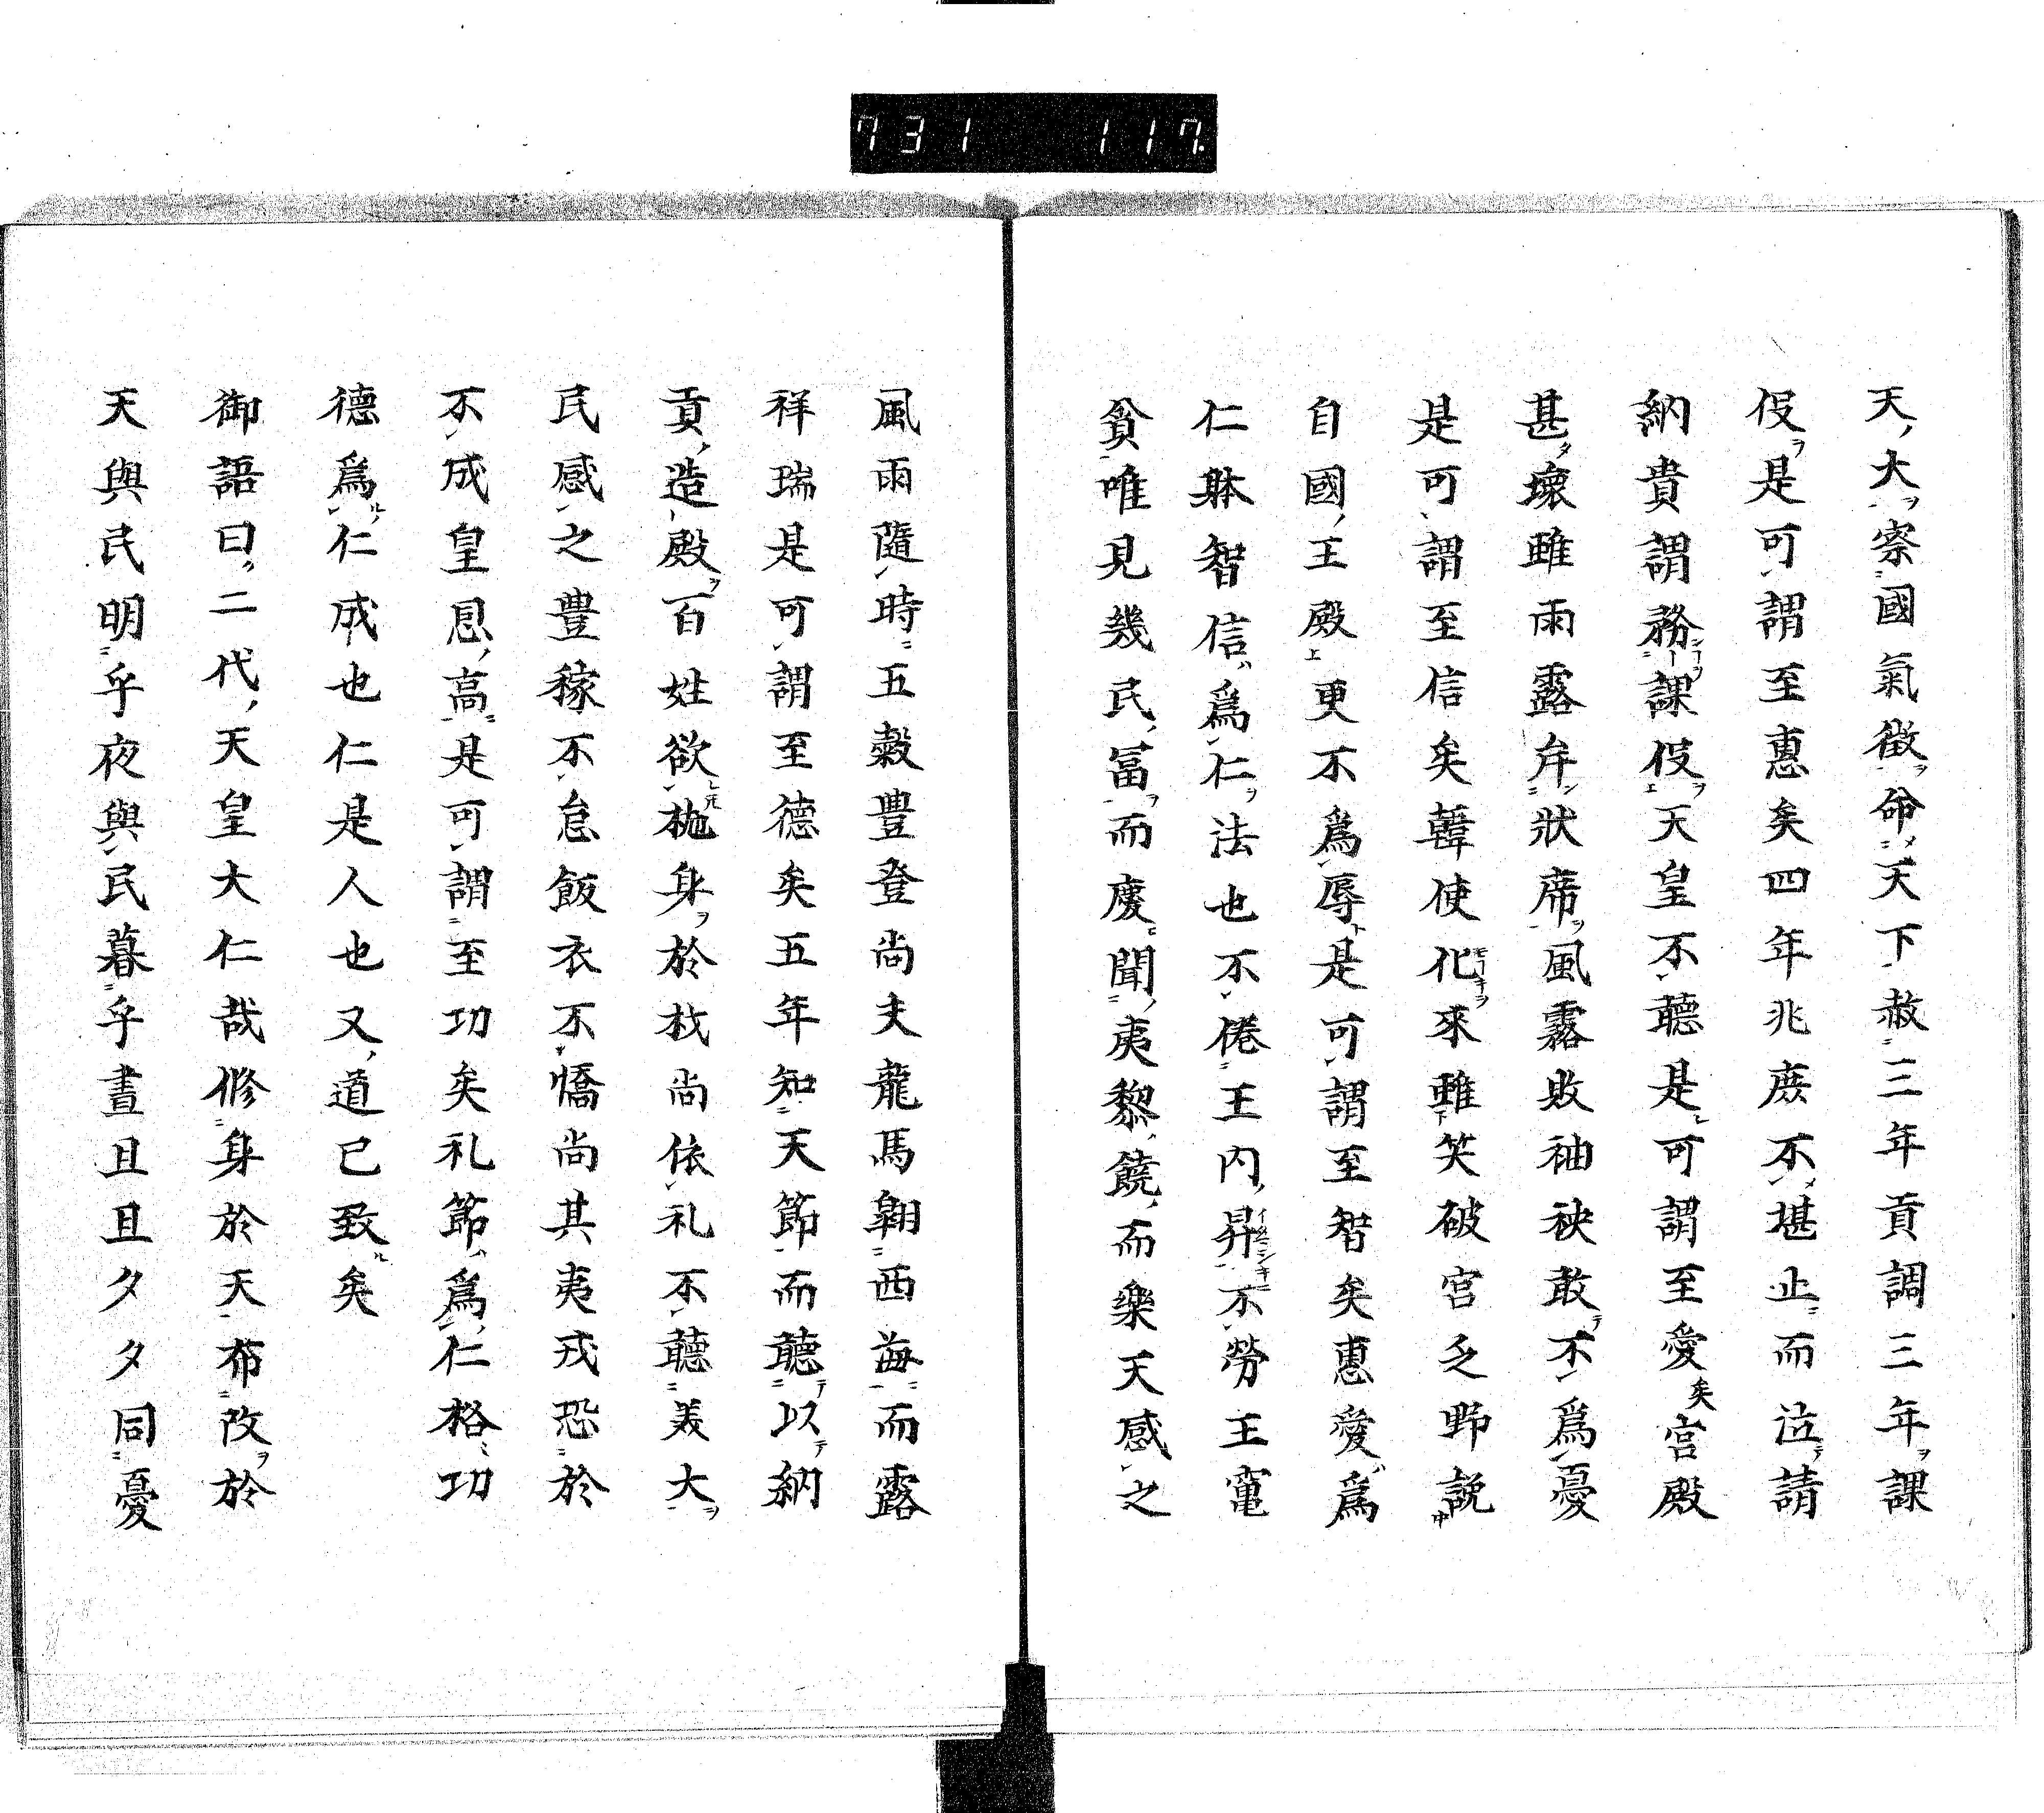 731 117.
天大察國氣徵命天下赦三年貢調三年課
伇是可謂至惠矣四年兆庶不堪止而泣請
納貴謂務課伇天皇不聽是可謂至愛矣宮殿
甚壞雖雨露牟狀席風露敗袖袂敢不爲憂
是可謂至信矣韓使化來雖笑破宮之野説
自國王殿更不爲辱是可謂至智矣惠愛爲
仁躰智信爲仁法也不倦王内昇不勞王竃
貧唯見幾民冨而慶聞夷黎饒而樂天感之
風雨隨時五穀豊登尚夫龍馬翱西海而露
祥瑞是可謂至德矣五年知天節而聽以納
貢造殿百姓欲施身於材尚依礼不聽美大
民感之豊稼不怠飯衣不憍尚其夷戎恐於
不成皇恩高是可謂至功矣礼節爲仁格功
德爲仁成也仁是人也又道已致矣
御語曰二代天皇大仁哉修身於天布改於
天與民明乎夜與民暮乎晝旦旦夕夕同憂